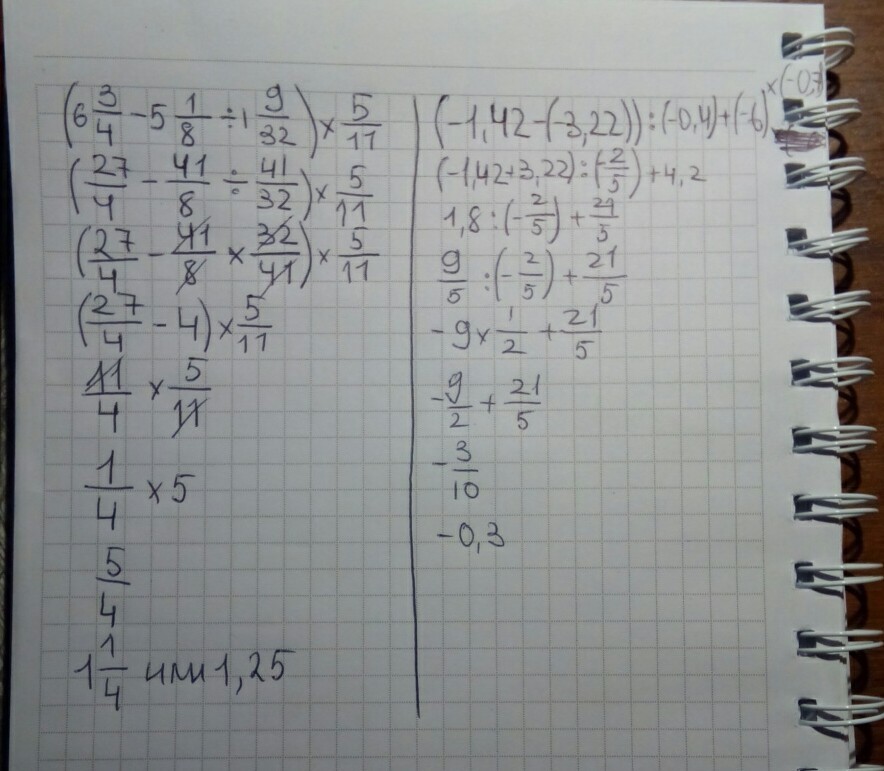 (6 3/4 - 5 1/8 ÷ 1 9/32) × 5/11
(27/4 - 41/8 ÷ 41/32) × 5/11
(27/4 - 41/8 × 32/41) × 5/11
(27/4 - 4) × 5/11
11/4 × 5/11
1/4 × 5
5/4
1 1/4 или 1,25
(-1,42-(-3,22)):(-0,4)+(-6)×(-0,7)
(-1,42+3,22):(-2/5)+4,2
1,8:(-2/5)+21/5
9/5:(-2/5)+21/5
-9×1/2+21/5
-9/2+21/5
-3/10
-0,3